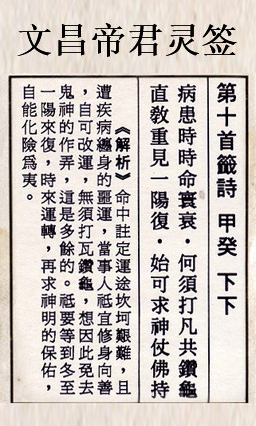 文昌帝君灵签
第十首籤詩 甲癸 下下
病患時時命蹇衰．何須打凡共鑽龜
直教重見一陽復．始可求神仗佛持
《解析》命中註定運途坎坷艱難，且
遭疾病纏身的噩運，當事人祇宜修身向善
，自可改運，無須打瓦鑽龜，想因此免去
鬼神的作弄，這是多餘的。祇要等到冬至
一陽來復，時來運轉，再求神明的保佑，
自能化險為夷。